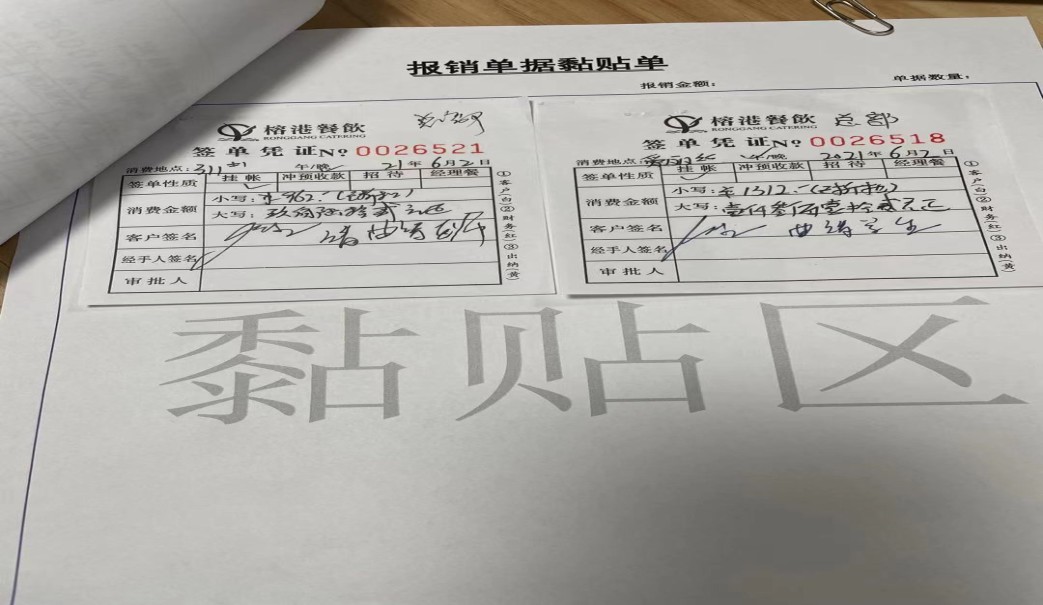 报销单据黏贴单
报销金额：
单据数量：
榕港餐飲
RONGGANG CATERING
签单凭证No 0026521
消费地点：311 午/晚 21年6月2日
签单性质 挂帐 冲预收款 招待 经理餐
消费金额 小写：¥962.
大写：玖佰陆拾贰元正
客户签名
经手人签名
审批人
①客户(白)②财务(红)③出纳(黄)
榕港餐飲 总部
RONGGANG CATERING
签单凭证No 0026518
消费地点： 午/晚 2021年6月2日
签单性质 挂帐 冲预收款 招待 经理餐
消费金额 小写：¥1312.
大写：壹仟叁佰壹拾贰元正
客户签名
经手人签名
审批人
①客户(白)②财务(红)③出纳(黄)
黏贴区